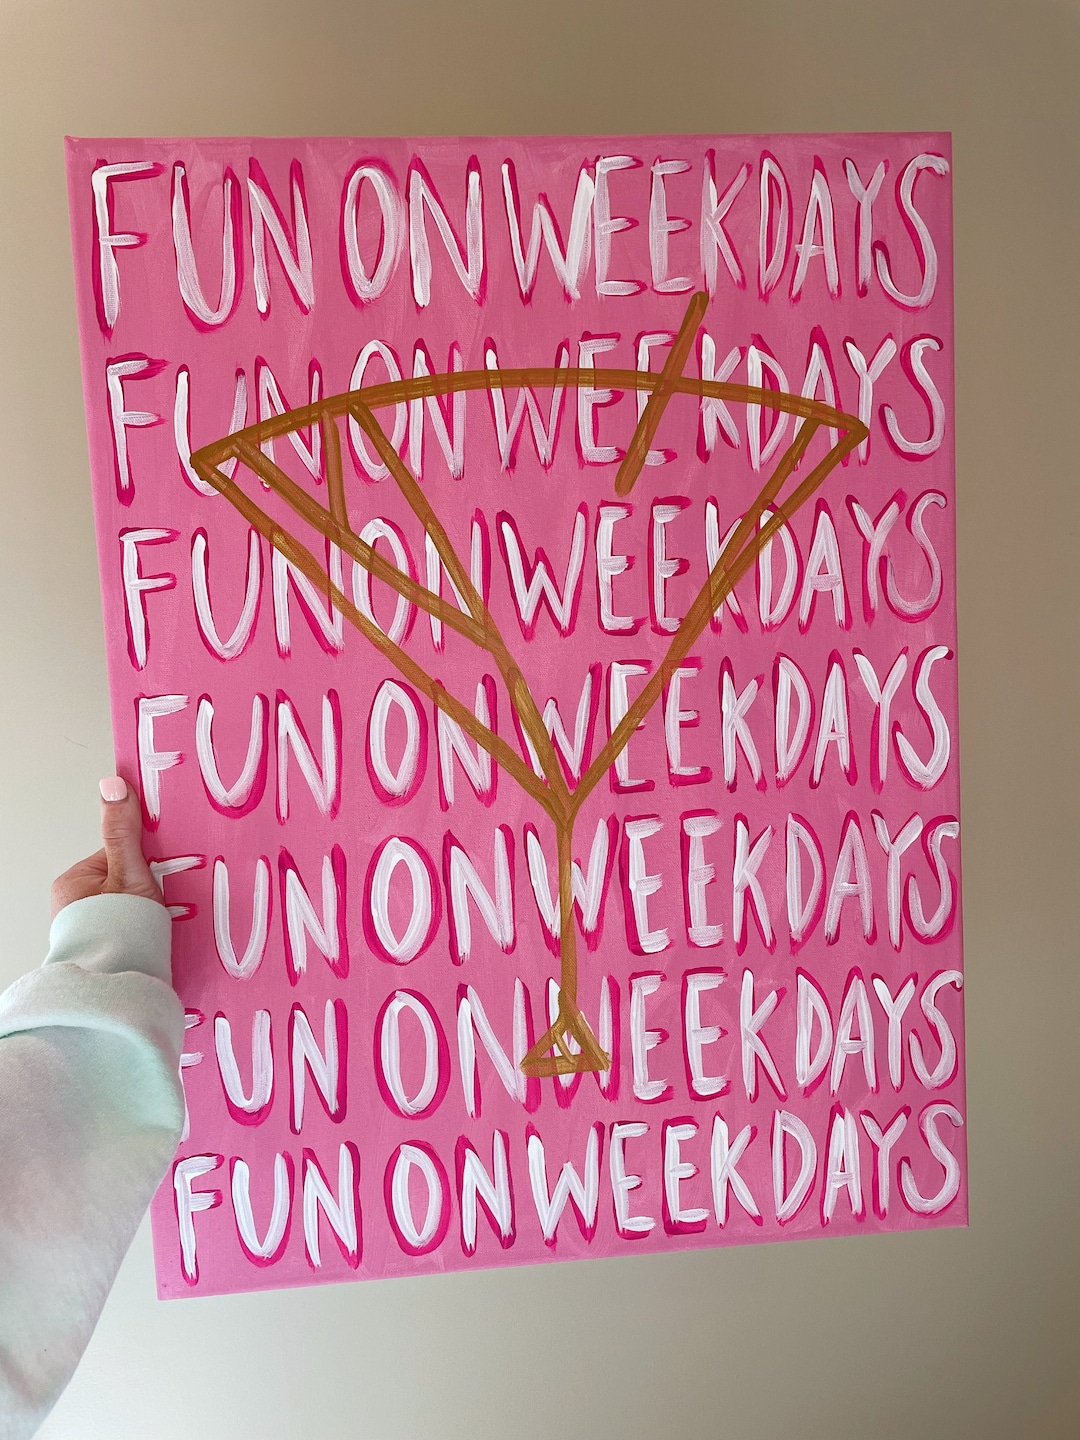 FUN ON WEEKDAYS
FUN ON WEEKDAYS
FUN ON WEEKDAYS
FUN ON WEEKDAYS
FUN ON WEEKDAYS
FUN ON WEEKDAYS
FUN ON WEEKDAYS